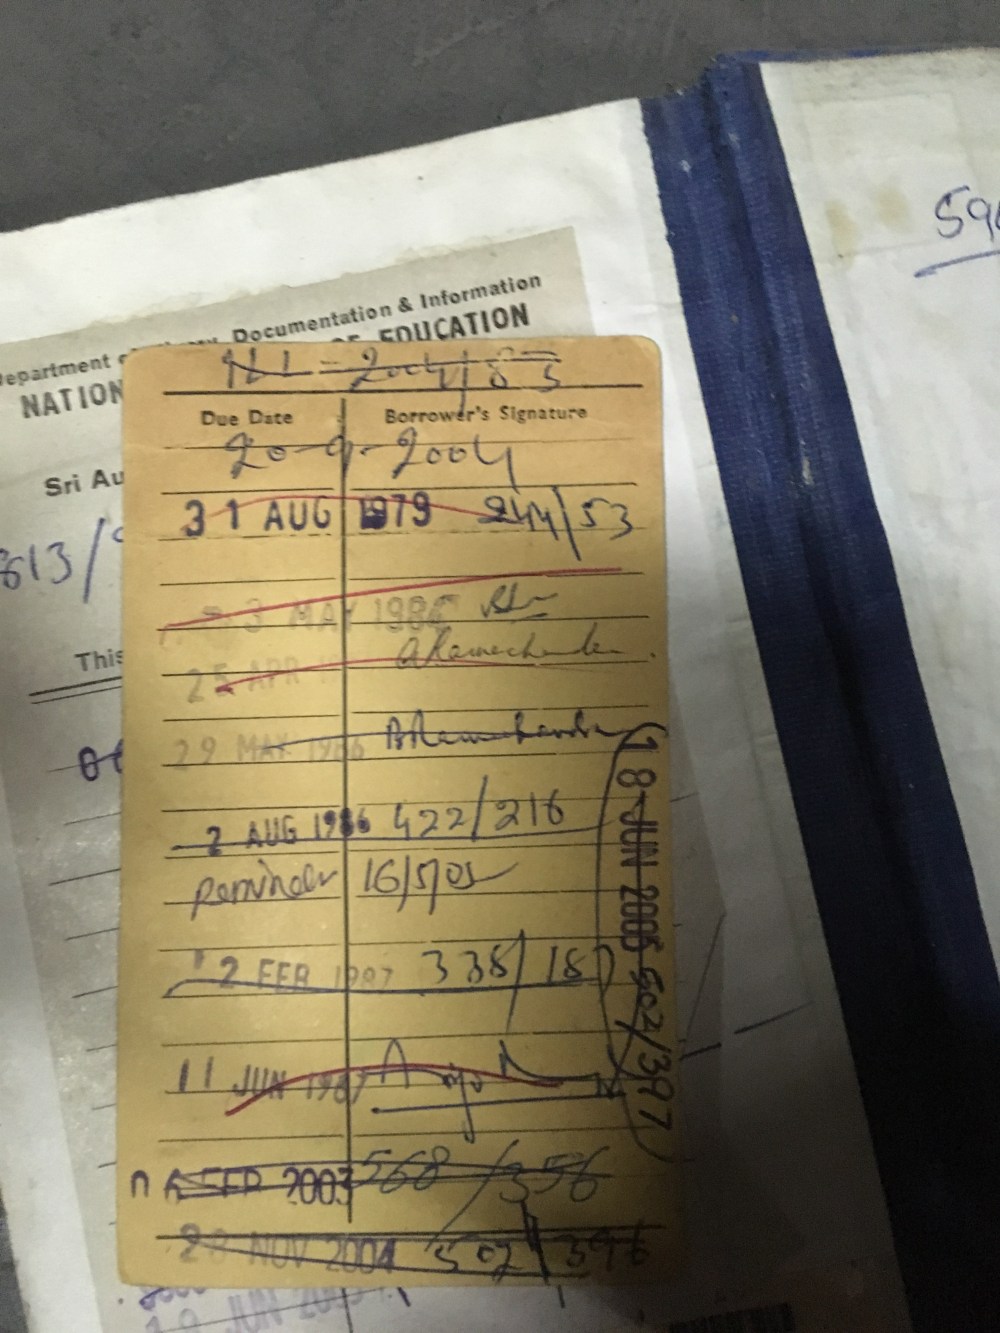 Documentation & Information
EDUCATION
NATION
Sri Au
813/
This
596
NLL = 2004/85
Due Date Borrower's Signature
20-9-2004
31 AUG 1979 244/53
3 MAY 1986
25 APR
29 MAY 1986
2 AUG 1986 422/216
Reminder 16/5/05
12 FEB 1987 338/18
11 JUN 1987
SEP 2003 568/356
28 NOV 2004 502/396
18 JUN 2005 502/397
JUN